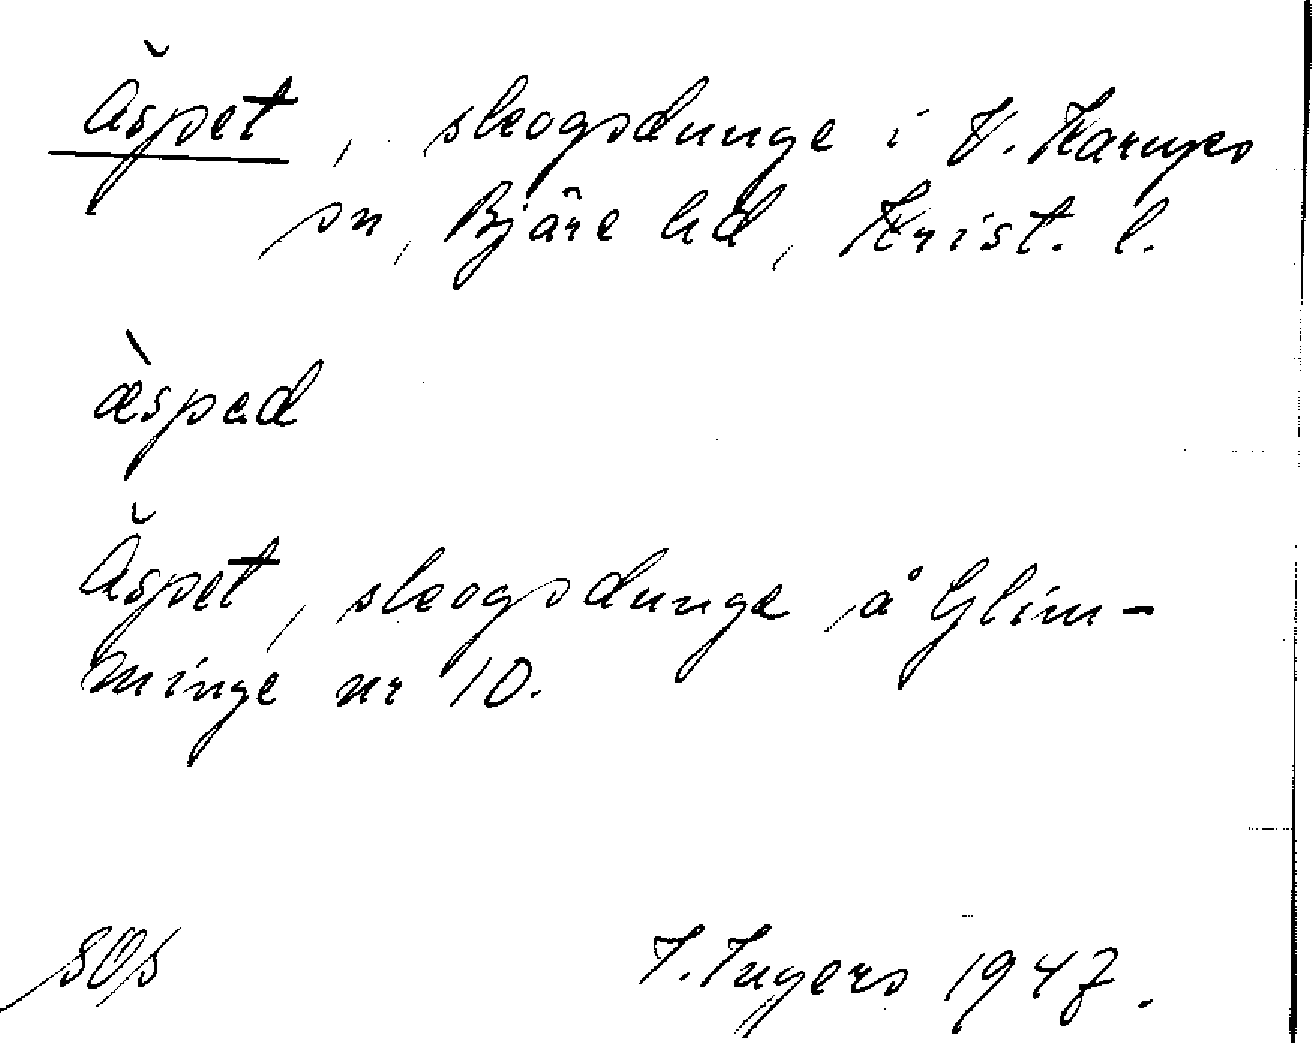 Äspet, skogsdunge i V. Karups
sn, Bjäre hd, Krist. l.
æ̀spad
Äspet, skogsdunge å Glim-
minge nr 10.
I. Ingers 1947.